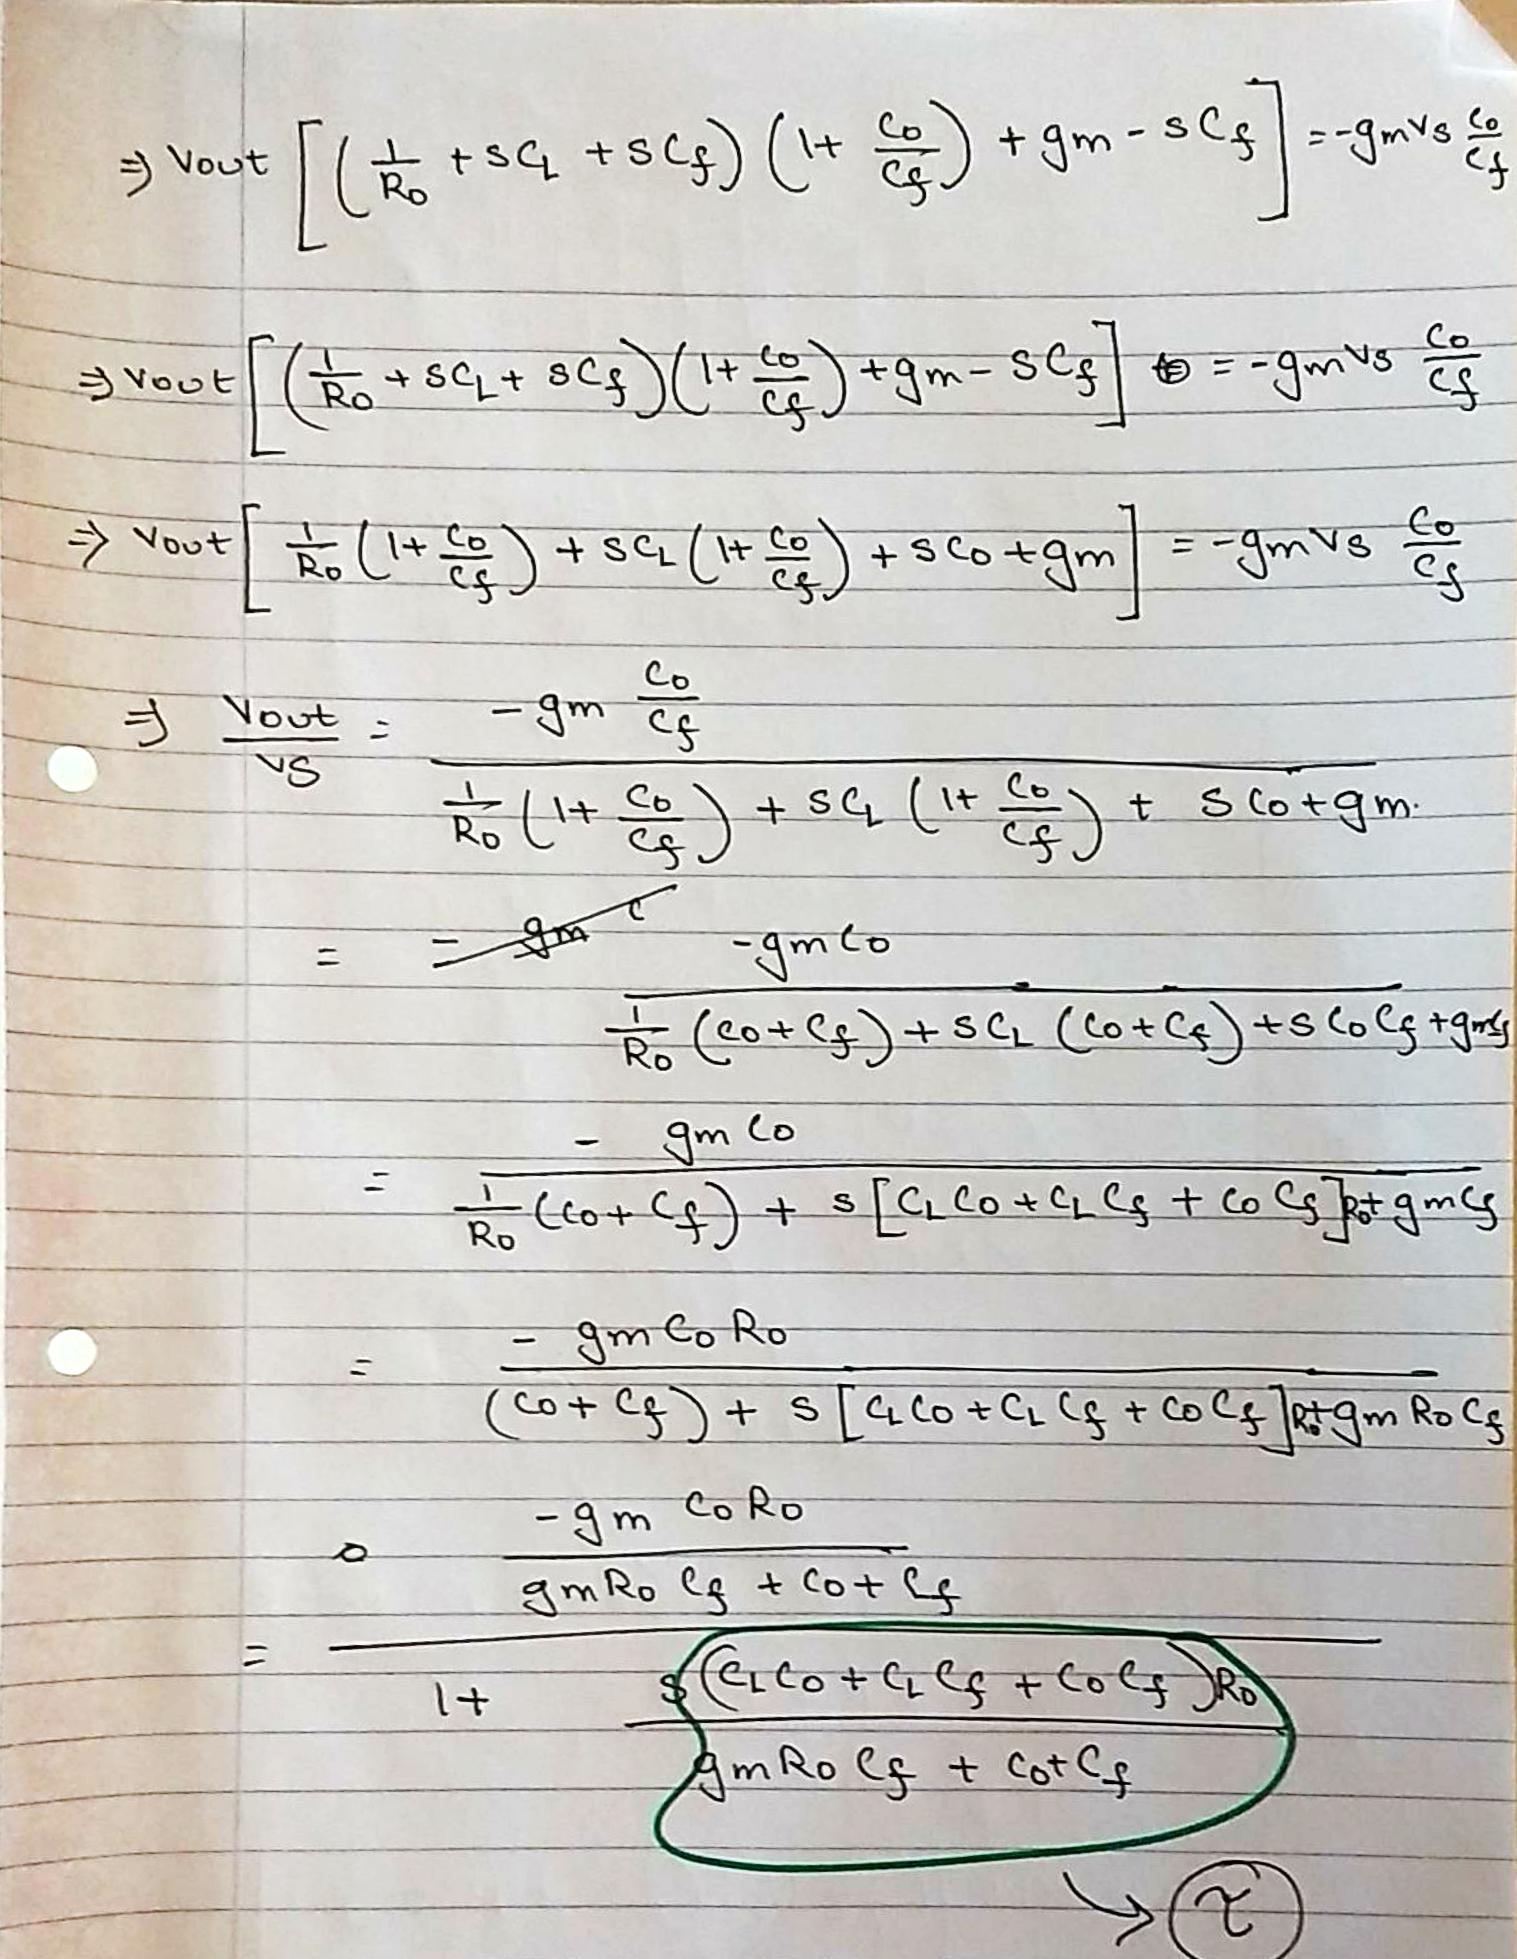 ⇒ Vout [ ( 1/Ro + sCL + sCf ) ( 1 + Co/Cf ) + gm - sCf ] = -gmVs Co/Cf
⇒ Vout [ ( 1/Ro + sCL + sCf ) ( 1 + Co/Cf ) + gm - sCf ] = -gmVs Co/Cf
⇒ Vout [ 1/Ro ( 1 + Co/Cf ) + sCL ( 1 + Co/Cf ) + sCo + gm ] = -gmVs Co/Cf
⇒ Vout/Vs = -gm Co/Cf
1/Ro ( 1 + Co/Cf ) + sCL ( 1 + Co/Cf ) + sCo + gm.
= - gm C -gmCo
1/Ro (Co + Cf) + sCL (Co + Cf) + sCoCf + gmCf
= - gmCo
1/Ro (Co + Cf) + s [CLCo + CLCf + CoCf] Ro + gmCf
= - gmCoRo
(Co + Cf) + s [CLCo + CLCf + CoCf] Ro + gmRoCf
-gm CoRo
gmRoCf + Co + Cf
=
1 + s(CLCo + CLCf + CoCf)Ro
gmRoCf + Co + Cf
→ τ